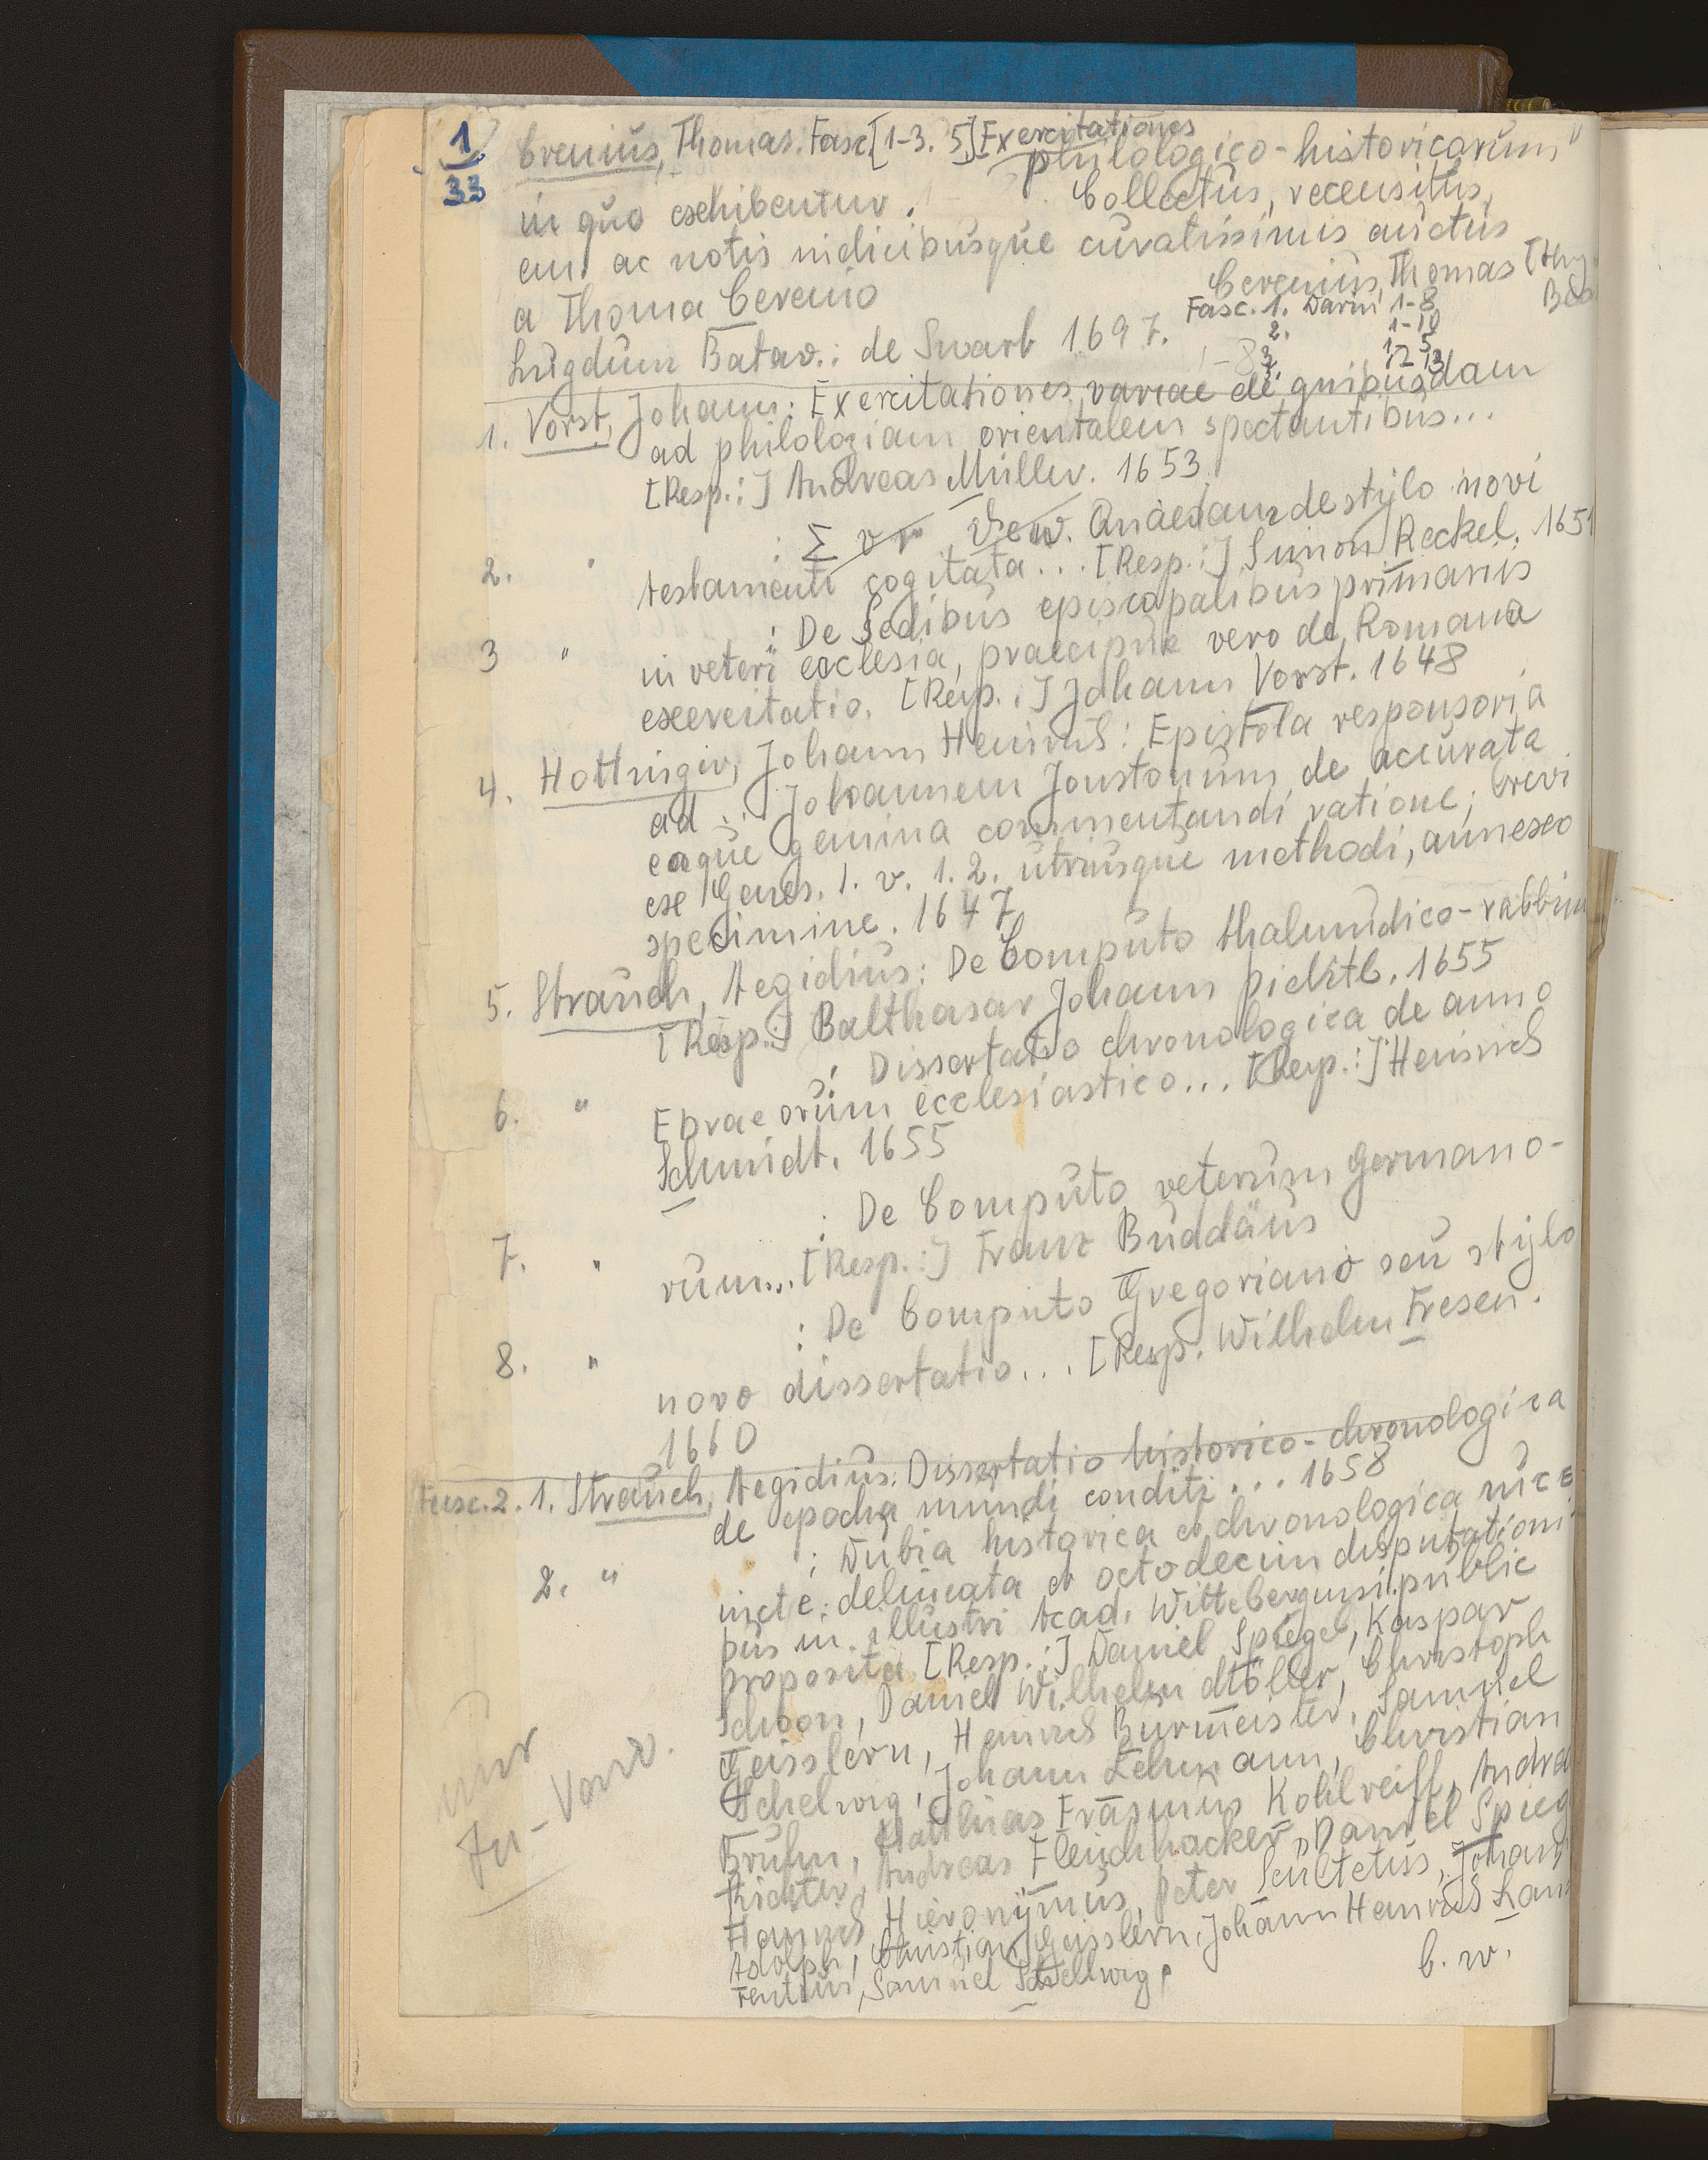 1
33
Crenius, Thomas. Fasc. [1-3. 5.] Exercitationes
philologico-historicarum
in quo exhibentur. Collectus, recensitus,
em. ac notis indicibusque curatissimis auctus
a Thoma Crenio
Crenius, Thomas
Lugdum Batav.: de Swart 1697.
Fasc. 1. Darin 1-8
2. 1-10
3. 1-5
1. Vorst, Johann: Exercitationes variae de quibusdam
ad philologiam orientalem spectantibus...
[Resp.:] Andreas Müller. 1653
2. " : de stylo novi
testamenti cogitata... [Resp.:] Simon Reckel. 165
3 " : De Sedibus episcopalibus primariis
in veteri ecclesia, praecipue vero de Romana
exercitatio. [Resp.:] Johann Vorst. 1648
4. Hottinger, Johann Heinrich: Epistola responsoria
ad .. Johannem Jonstonum de accurata
eaque gemina commentandi ratione; brevi
ex Genes. 1. v. 1. 2. utriusque methodi, annexo
specimine. 1647
5. Strauch, Aegidius: De Computo thalmudico-rabbin
[Resp.:] Balthasar Johann 1655
6. " : Dissertatio chronologica de anno
Ebraeorum ecclesiastico... [Resp.:] Heinrich
Schmidt. 1655
7. " : De Computo veterum Germano-
rum... [Resp.:] Franz Buddäus
8. " : De Computo Gregoriano seu stylo
novo dissertatio... [Resp. Wilhelm Fresen.
1660
Fasc. 2. 1. Strauch, Aegidius: Dissertatio historico-chronologica
de epocha mundi conditi... 1658
2. " : Dubia historica et chronologica
delineata et octodecim disputationi
bus in illustri Acad. Wittebergensi public
proposita [Resp.:] Daniel Spiegel, Kaspar
Schoon, Daniel Wilhelm Möller, Christoph
Geisslern, Heinrich Burmeister, Samuel
Schelwig, Johann Lehmann, Christian
Bruhn, Matthias Erasmus Kohlreiff, Andrea
Richter, Andreas Fleischhacker, Daniel Spieg
Heinrich Hieronymus, Peter Scultetus, Johann
Adolph, Christian Geisslern, Johann Heinrich Lau
rentius, Samuel Schellwig,
b. w.
nur
Zu-Vorw.